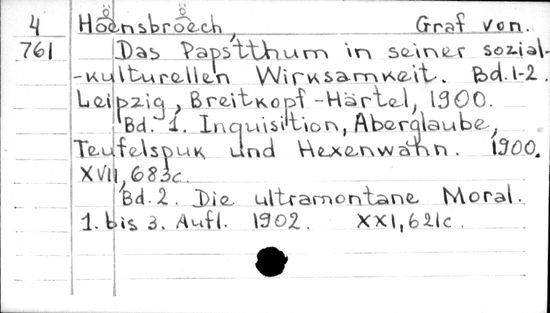 4 Hoensbroech, Graf von.
761 Das Papstthum in seiner sozial-
-kulturellen Wirksamkeit. Bd.1-2.
Leipzig, Breitkopf-Härtel, 1900.
Bd. 1. Inquisition, Aberglaube,
Teufelspuk und Hexenwahn. 1900.
XVII, 683c.
Bd.2. Die ultramontane Moral.
1. bis 3. Aufl. 1902. XXI, 621c.